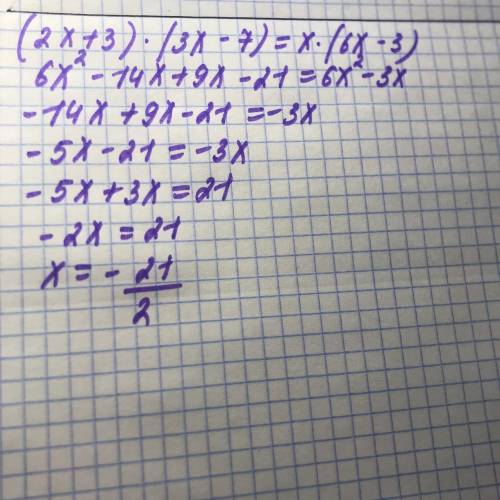 (2x+3)·(3x-7)=x·(6x-3)
6x²-14x+9x-21=6x²-3x
-14x+9x-21=-3x
-5x-21=-3x
-5x+3x=21
-2x=21
x=-21/2